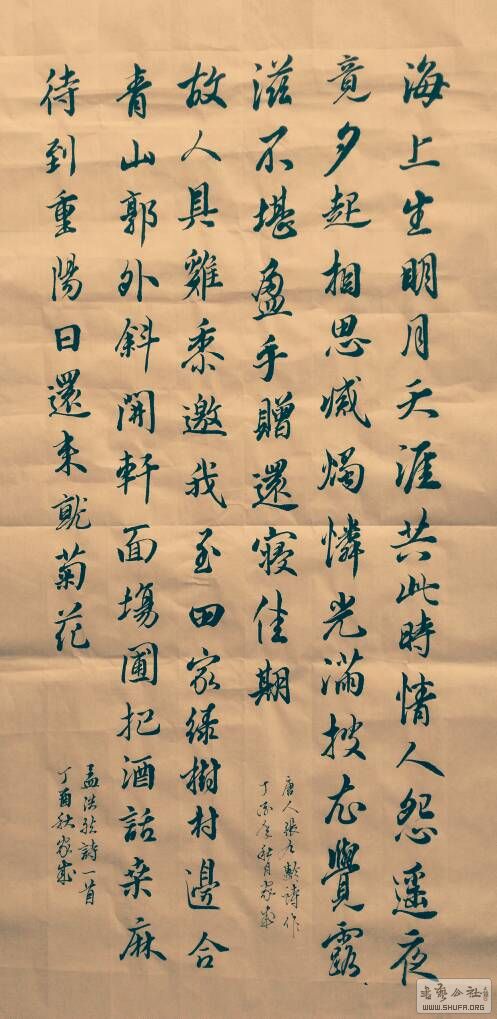 海上生明月天涯共此時情人怨遥夜
竟夕起相思滅燭憐光滿披衣覺露
滋不堪盈手贈還寢佳期
唐人張九齡詩作
故人具雞黍邀我至田家绿樹村邊合
青山郭外斜開軒面場圃把酒話桑麻
待到重陽日還来就菊花
孟浩然詩一首
丁酉秋家成
書藝公社
WWW.SHUFA.ORG